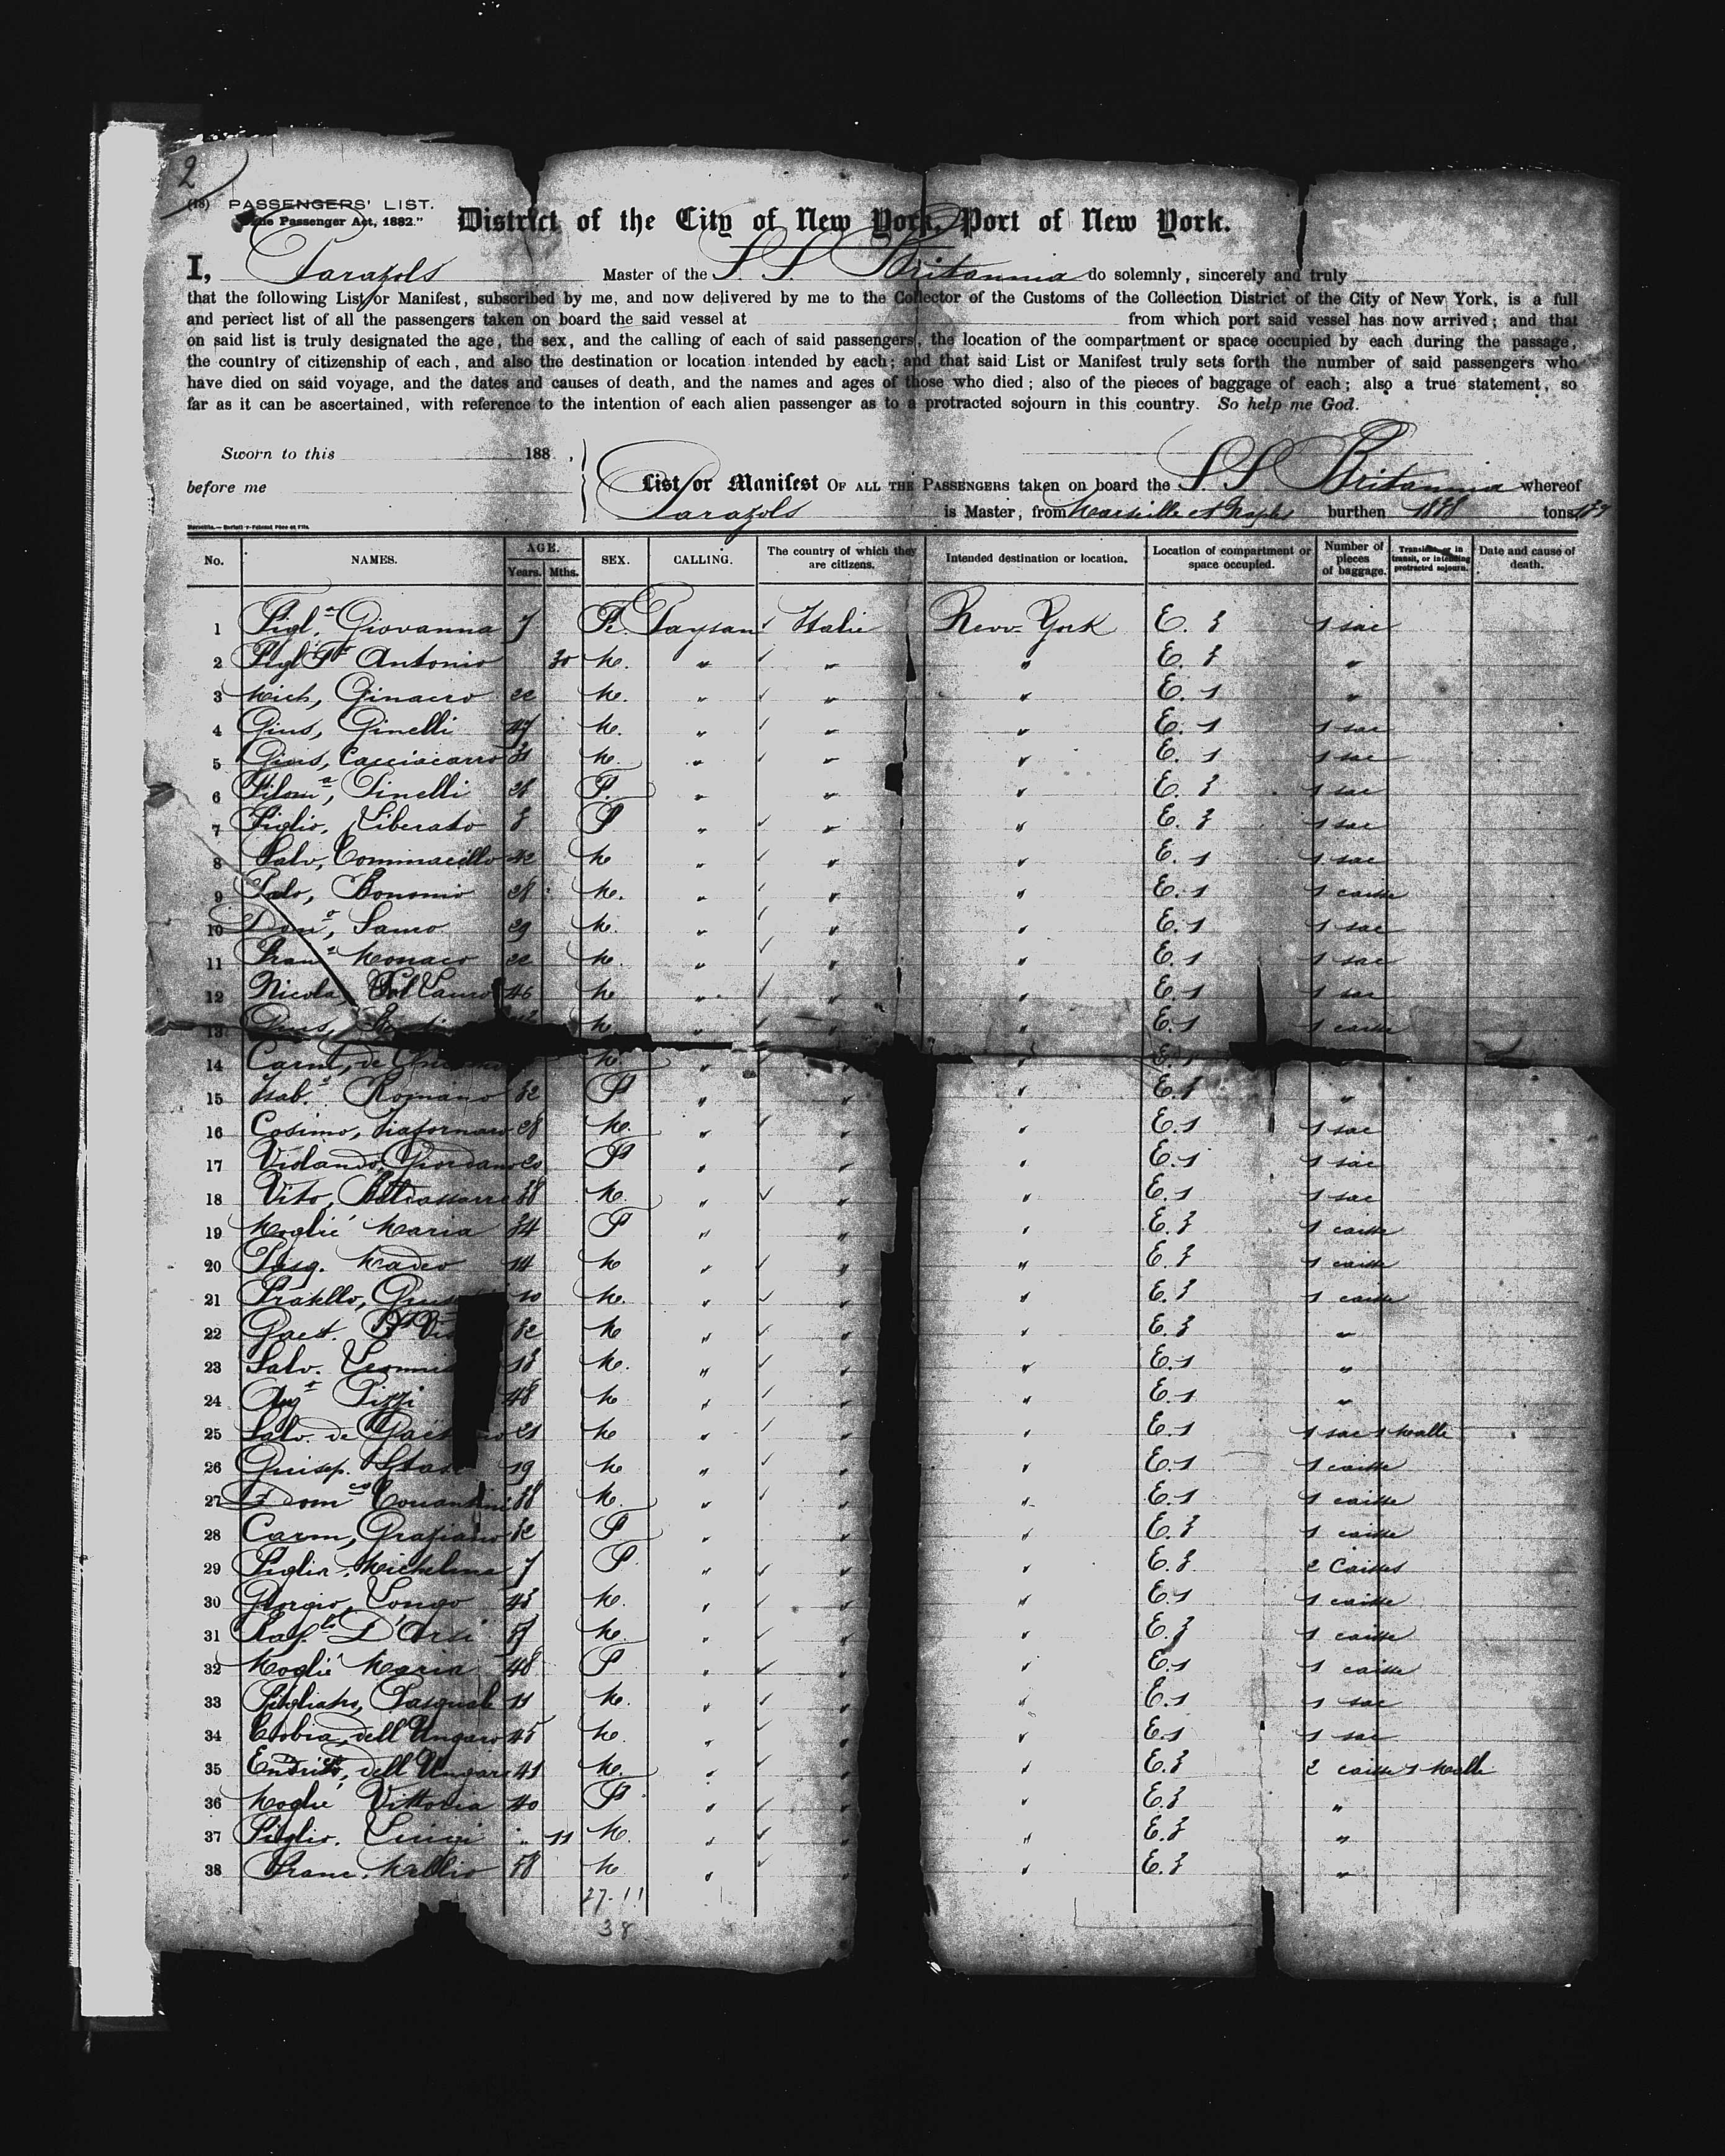 2
(18) PASSENGERS' LIST.
"the Passenger Act, 1882."
District of the City of New York, Port of New York.
I, Parazols Master of the S S Britannia do solemnly, sincerely and truly
that the following List or Manifest, subscribed by me, and now delivered by me to the Collector of the Customs of the Collection District of the City of New York, is a full
and perfect list of all the passengers taken on board the said vessel at from which port said vessel has now arrived; and that
on said list is truly designated the age, the sex, and the calling of each of said passengers, the location of the compartment or space occupied by each during the passage,
the country of citizenship of each, and also the destination or location intended by each; and that said List or Manifest truly sets forth the number of said passengers who
have died on said voyage, and the dates and causes of death, and the names and ages of those who died; also of the pieces of baggage of each; also a true statement, so
far as it can be ascertained, with reference to the intention of each alien passenger as to a protracted sojourn in this country. So help me God.
Sworn to this 188 ,
before me
List or Manifest OF ALL THE PASSENGERS taken on board the S S Britannia whereof
Parazols is Master, from Marseille et Naples burthen tons
No. NAMES. AGE. Years. Mths. SEX. CALLING. The country of which they are citizens. Intended destination or location. Location of compartment or space occupied. Number of pieces of baggage. Transient, or in transit, or intending protracted sojourn. Date and cause of death.
1 Figl.a Giovanna 7 F. Paysan Italie New-York E. 3 1 sac
2 Antonio 30 M. " " " E. 3 "
3 Mich, Ginacro 22 M. " " " E. 1 "
4 Gius, Ginelli 47 M. " " " E. 1 1 sac
5 Gius, Cacciacarro 31 M. " " " E. 1 1 sac
6 Filom.a, Finelli 26 F. " " " E. 3 1 sac
7 Figlio, Liberato 3 F " " " E. 3 1 sac
8 Salv, 42 M " " " E. 1 1 sac
9 Bonomo 28 M. " " " E. 1 1 caisse
10 Dom.o, Samo 29 M. " " " E. 1 1 sac
11 Fran.o Monaco 22 M. " " " E. 1 1 sac
12 Nicola, 46 M " " " E. 1 1 sac
13 Gius, M. " " " E. 1 1 caisse
14 Carm, de M. " " " E. 1
15 Isab.a Romano 32 F " " " E. 3 "
16 Cosimo, 28 M. " " " E. 1 1 sac
17 Giordano 20 F " " " E. 1 1 sac
18 Vito, 38 M. " " " E. 1 1 sac
19 Moglié Maria 34 F " " " E. 3 1 caisse
20 Pasq. Madeo 14 M " " " E. 3 1 caisse
21 Fratello, 10 M. " " " E. 3 1 caisse
22 Gaet. 32 M " " " E. 3 "
23 Salv. 13 M. " " " E. 1 "
24 Pizzi 48 M " " " E. 1 "
25 Salv. de 21 M " " " E. 1 1 sac 1 Malle
26 Guisep. 19 M " " " E. 1 1 caisse
27 Dom.co 38 M. " " " E. 1 1 caisse
28 Carm, Graziano 32 F " " " E. 3 1 caisse
29 Figlia, Michelina 7 F. " " " E. 3 2 Caisses
30 Giorgio, Longo 43 M. " " " E. 1 1 caisse
31 D'Orsi M. " " " E. 3 1 caisse
32 Moglié Maria 48 F " " " E. 1 1 caisse
33 Pasquale 11 M. " " " E. 1 1 sac
34 dell'Ungaro 45 M. " " " E. 1 1 sac
35 dell'Ungaro 41 M. " " " E. 3 2 caisse 1 Malle
36 Moglié Vittoria 40 F " " " E. 3 "
37 Figlio. Luigi 11 M. " " " E. 3 "
38 Franc. 58 M " " " E. 3 "
27-11
38